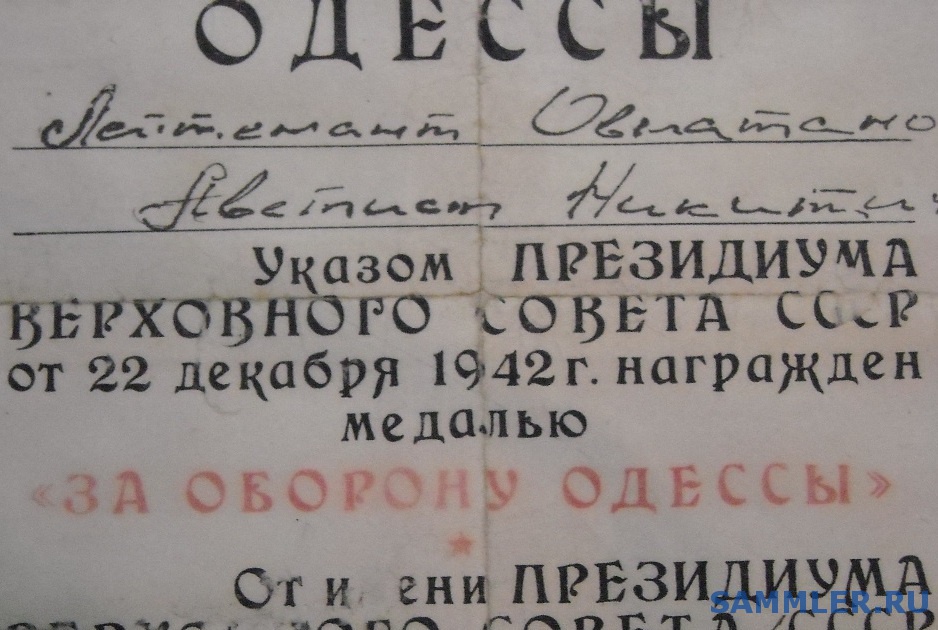 ОДЕССЫ
Лейтенант
Аветист Никити
Указом ПРЕЗИДИУМА
ВЕРХОВНОГО СОВЕТА СССР
от 22 декабря 1942 г. награжден
медалью
«ЗА ОБОРОНУ ОДЕССЫ»
От имени ПРЕЗИДИУМА
SAMMLER.RU
ВЕРХОВНОГО СОВЕТА СССР